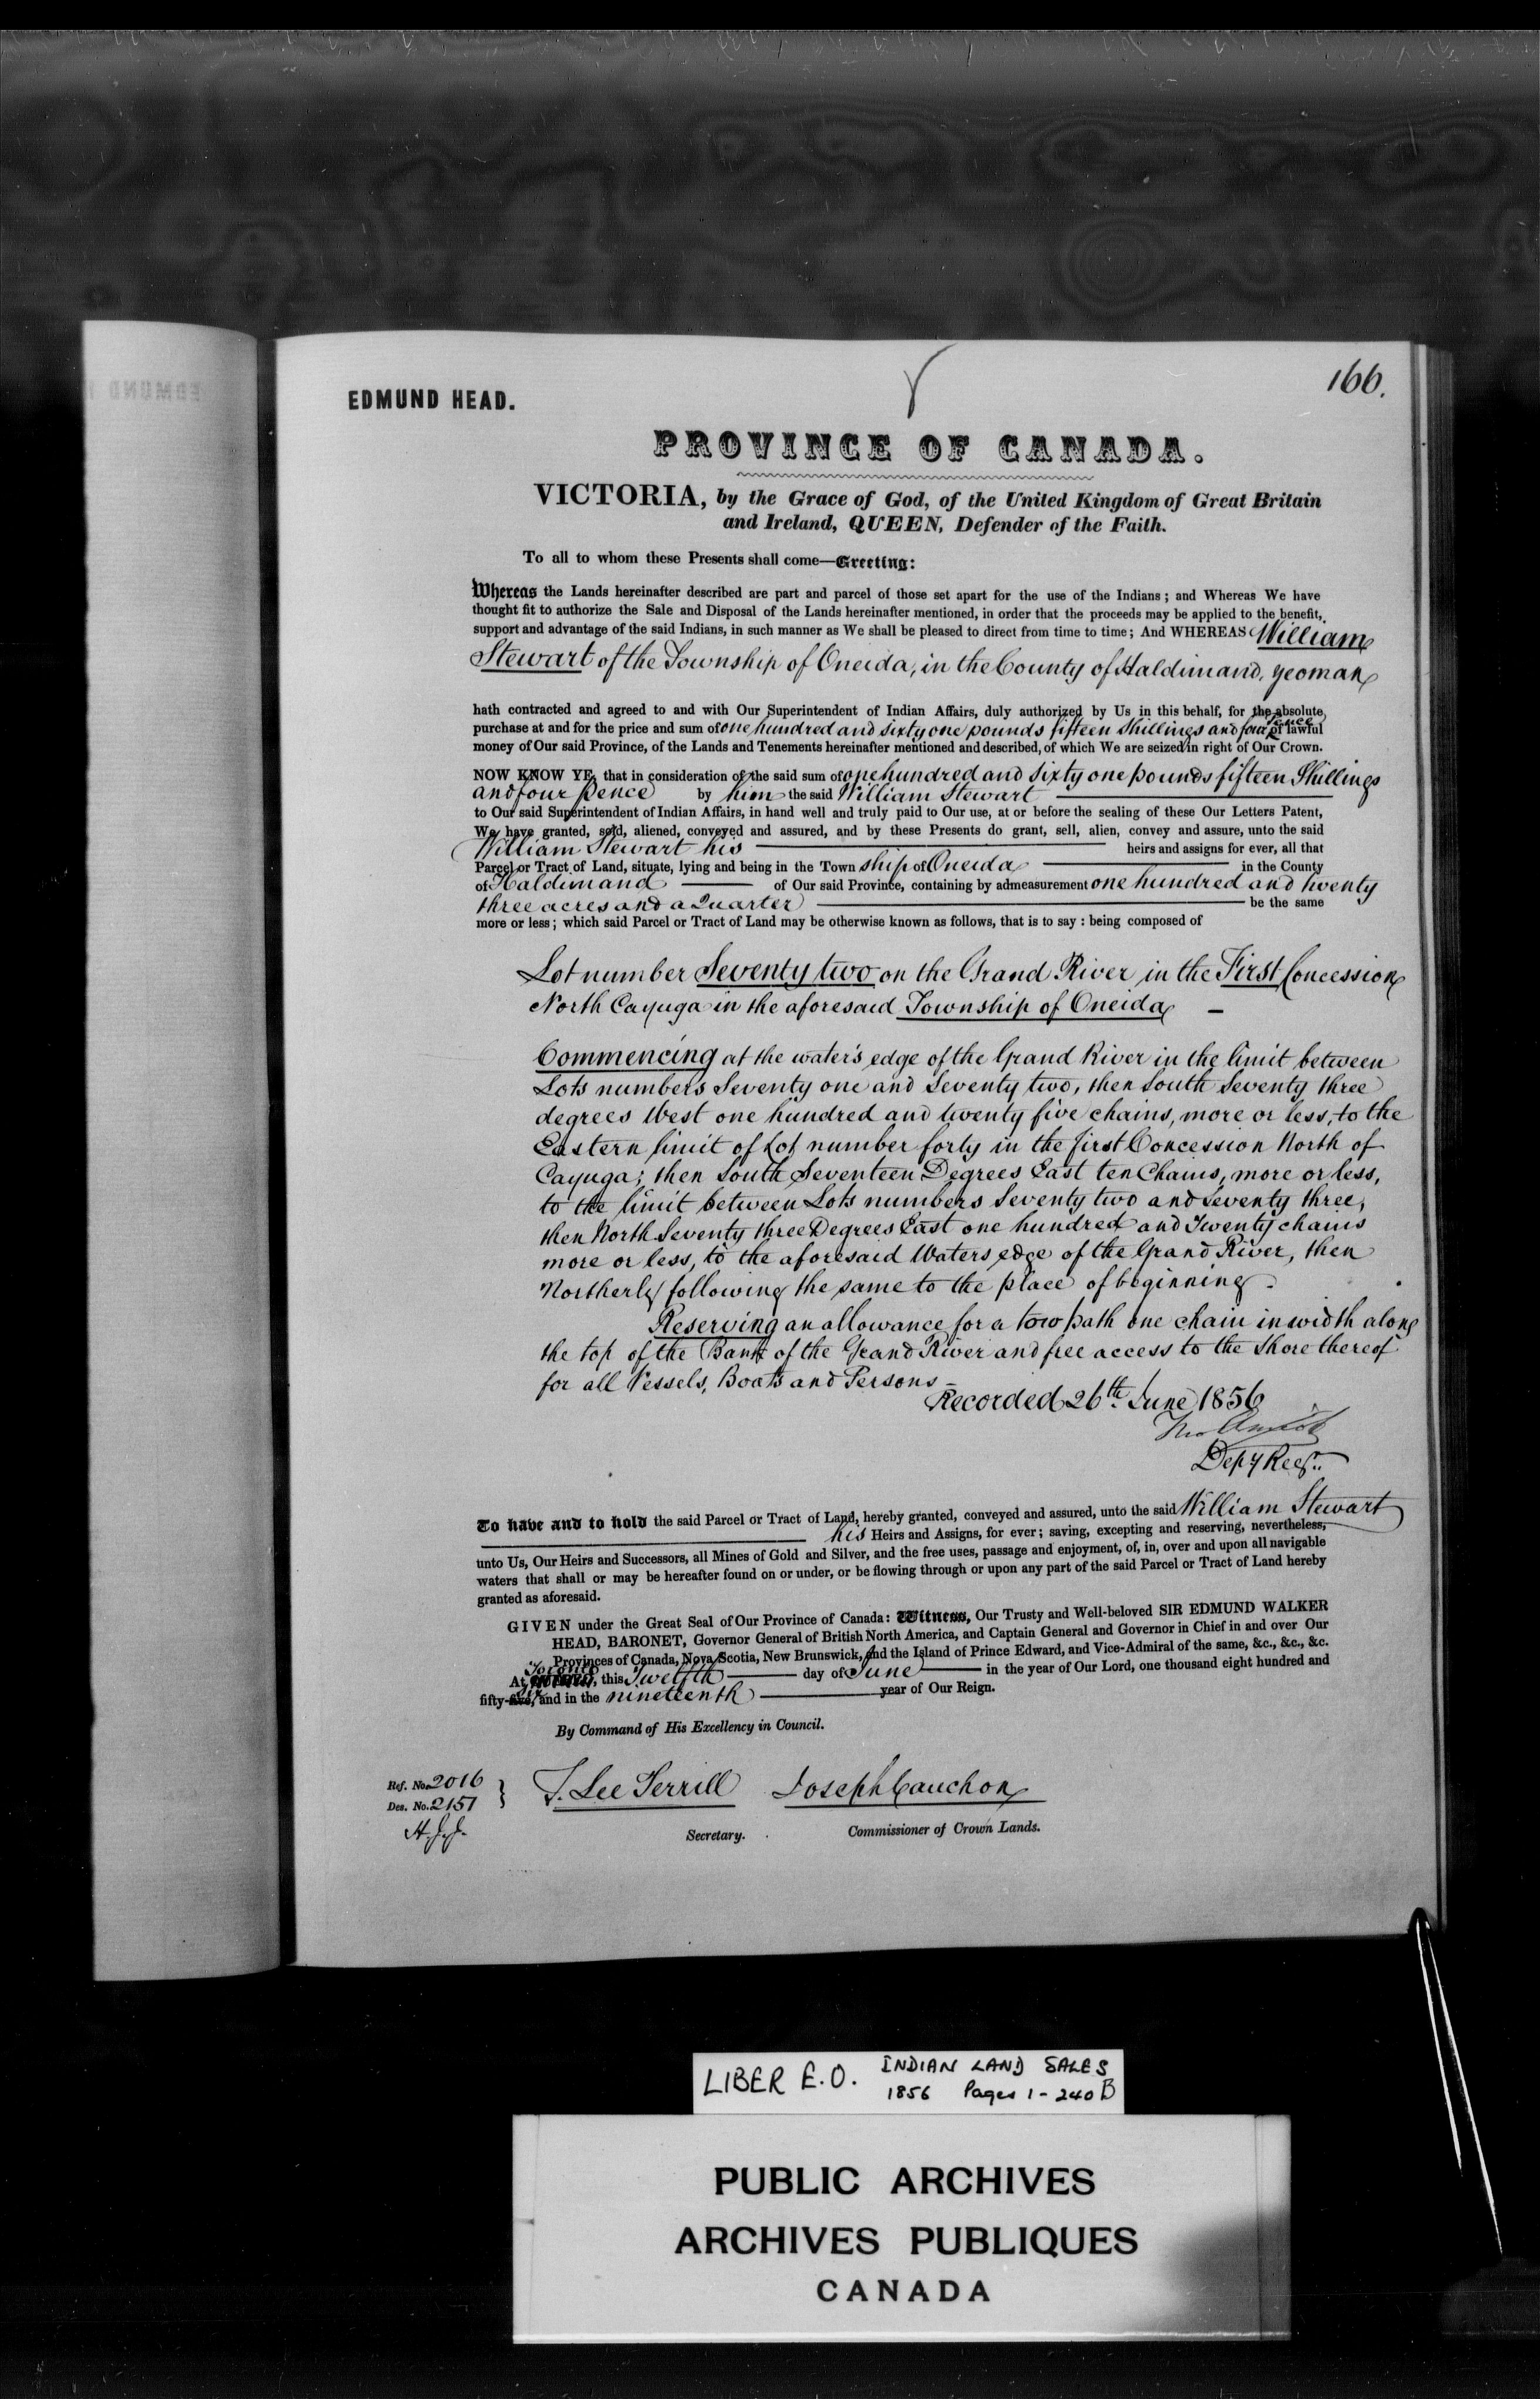 166.
EDMUND HEAD.
PROVINCE OF CANADA.
VICTORIA, by the Grace of God, of the United Kingdom of Great Britain
and Ireland, QUEEN, Defender of the Faith.
To all to whom these Presents shall come—Greeting:
Whereas the Lands hereinafter described are part and parcel of those set apart for the use of the Indians; and Whereas We have
thought fit to authorize the Sale and Disposal of the Lands hereinafter mentioned, in order that the proceeds may be applied to the benefit,
support and advantage of the said Indians, in such manner as We shall be pleased to direct from time to time; And WHEREAS William
Stewart of the Township of Oneida, in the County of Haldimand, yeoman
hath contracted and agreed to and with Our Superintendent of Indian Affairs, duly authorized by Us in this behalf, for the absolute
purchase at and for the price and sum of one hundred and sixty one pounds fifteen Shillings and four pence of lawful
money of Our said Province, of the Lands and Tenements hereinafter mentioned and described, of which We are seized in right of Our Crown.
NOW KNOW YE, that in consideration of the said sum of one hundred and Sixty one pounds fifteen Shillings
and four pence by him the said William Stewart
to Our said Superintendent of Indian Affairs, in hand well and truly paid to Our use, at or before the sealing of these Our Letters Patent,
We have granted, sold, aliened, conveyed and assured, and by these Presents do grant, sell, alien, convey and assure, unto the said
William Stewart his heirs and assigns for ever, all that
Parcel or Tract of Land, situate, lying and being in the Town ship of Oneida in the County
of Haldimand of Our said Province, containing by admeasurement one hundred and twenty
three acres and a Quarter be the same
more or less; which said Parcel or Tract of Land may be otherwise known as follows, that is to say: being composed of
Lot number Seventy two on the Grand River in the First Concession
North Cayuga in the aforesaid Township of Oneida —
Commencing at the water's edge of the Grand River in the limit between
Lots numbers Seventy one and Seventy two, then South Seventy three
degrees West one hundred and twenty five chains, more or less, to the
Eastern limit of Lot number forty in the first Concession North of
Cayuga; then South Seventeen Degrees East ten Chains, more or less,
to the limit between Lots numbers Seventy two and Seventy three,
then North Seventy three Degrees East one hundred and Twenty chains
more or less, to the aforesaid Waters edge of the Grand River, then
Northerly following the same to the place of beginning.
Reserving an allowance for a tow path one chain in width along
the top of the Bank of the Grand River and free access to the Shore thereof
for all Vessels, Boats and Persons—
Recorded 26th June 1856
Depy Regr.
To have and to hold the said Parcel or Tract of Land, hereby granted, conveyed and assured, unto the said William Stewart
his Heirs and Assigns, for ever; saving, excepting and reserving, nevertheless,
unto Us, Our Heirs and Successors, all Mines of Gold and Silver, and the free uses, passage and enjoyment, of, in, over and upon all navigable
waters that shall or may be hereafter found on or under, or be flowing through or upon any part of the said Parcel or Tract of Land hereby
granted as aforesaid.
GIVEN under the Great Seal of Our Province of Canada: Witness, Our Trusty and Well-beloved SIR EDMUND WALKER
HEAD, BARONET, Governor General of British North America, and Captain General and Governor in Chief in and over Our
Provinces of Canada, Nova Scotia, New Brunswick, and the Island of Prince Edward, and Vice-Admiral of the same, &c., &c., &c.
At Toronto, this Twelfth day of June in the year of Our Lord, one thousand eight hundred and
fifty-five, Six and in the nineteenth year of Our Reign.
By Command of His Excellency in Council.
Ref. No. 2016
Des. No. 2157
H.J.J.
T. Lee Terrill Joseph Cauchon
Secretary. Commissioner of Crown Lands.
LIBER E.O. INDIAN LAND SALES
1856 Pages 1-240B
PUBLIC ARCHIVES
ARCHIVES PUBLIQUES
CANADA